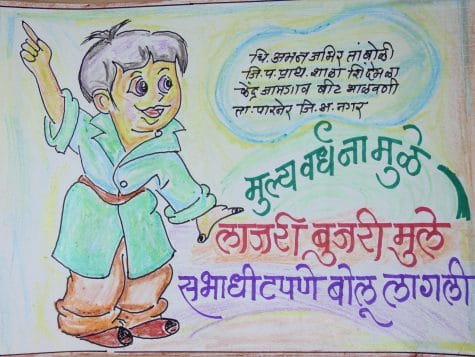 चि. अमन जमिर तांबोळी
जि. प. प्राथ. शाळा शिंदेमळा
केंद्र जामगाव बीट भाळवणी
ता. पारनेर जि. अ. नगर
मुल्य वर्धनामुळे
लाजरी बुजरी मुले
सभाधीटपणे बोलू लागली